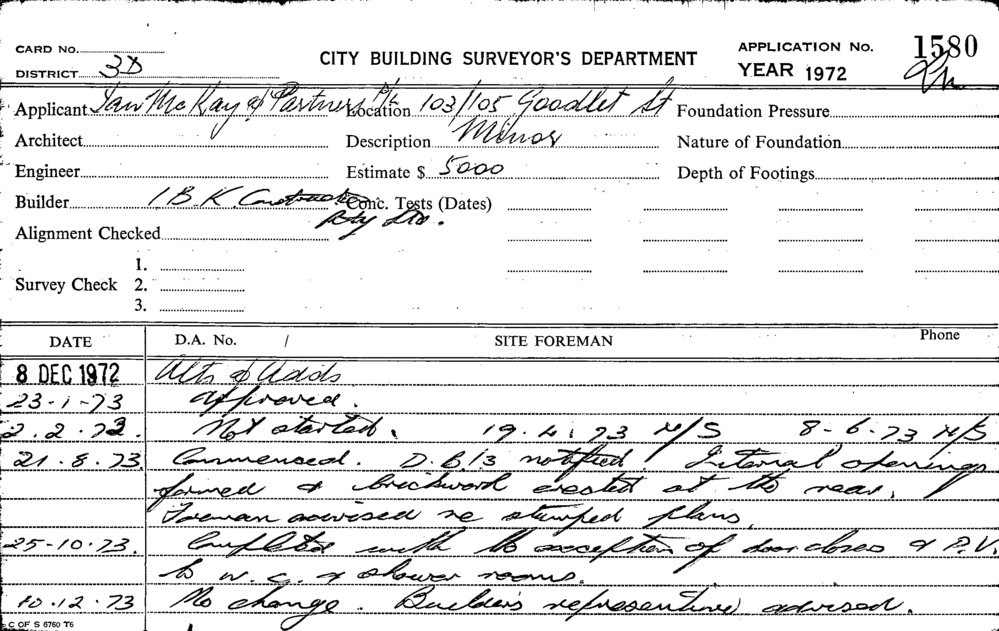 CARD No.
CITY BUILDING SURVEYOR'S DEPARTMENT
APPLICATION No. 1580
DISTRICT 3D
YEAR 1972
Applicant Ian McKay & Partners P/L
Location 103/105 Goodlet St
Foundation Pressure
Architect
Description Minor
Nature of Foundation
Engineer
Estimate $ 5000
Depth of Footings
Builder I B.K. Construction Pty Ltd.
Conc. Tests (Dates)
Alignment Checked
Survey Check
1.
2.
3.
DATE D.A. No. / SITE FOREMAN Phone
8 DEC 1972 Alts & Adds
23-1-73 Approved.
2.2.73. Not started. 19.4.73 N/S 8-6.73 N/S
21.8.73. Commensed. D.B/3 notified. Internal openings
formed & brickwork erected at the rear.
Foreman advised re stamped plans.
25-10-73. Completed with the exception of door closers & P.V.
to w.c. & shower rooms.
10.12.73 No change. Builders representive advised.
C OF S 6760 T6